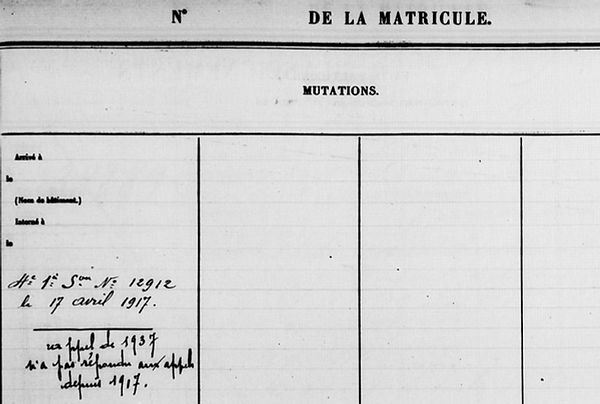 N° DE LA MATRICULE.
MUTATIONS.
Arrivé à
le
(Nom du bâtiment.)
Interné à
le
1re Son No 12912
le 17 avril 1917.
appel de 1937
n'a pas répondu aux appels
depuis 1917.